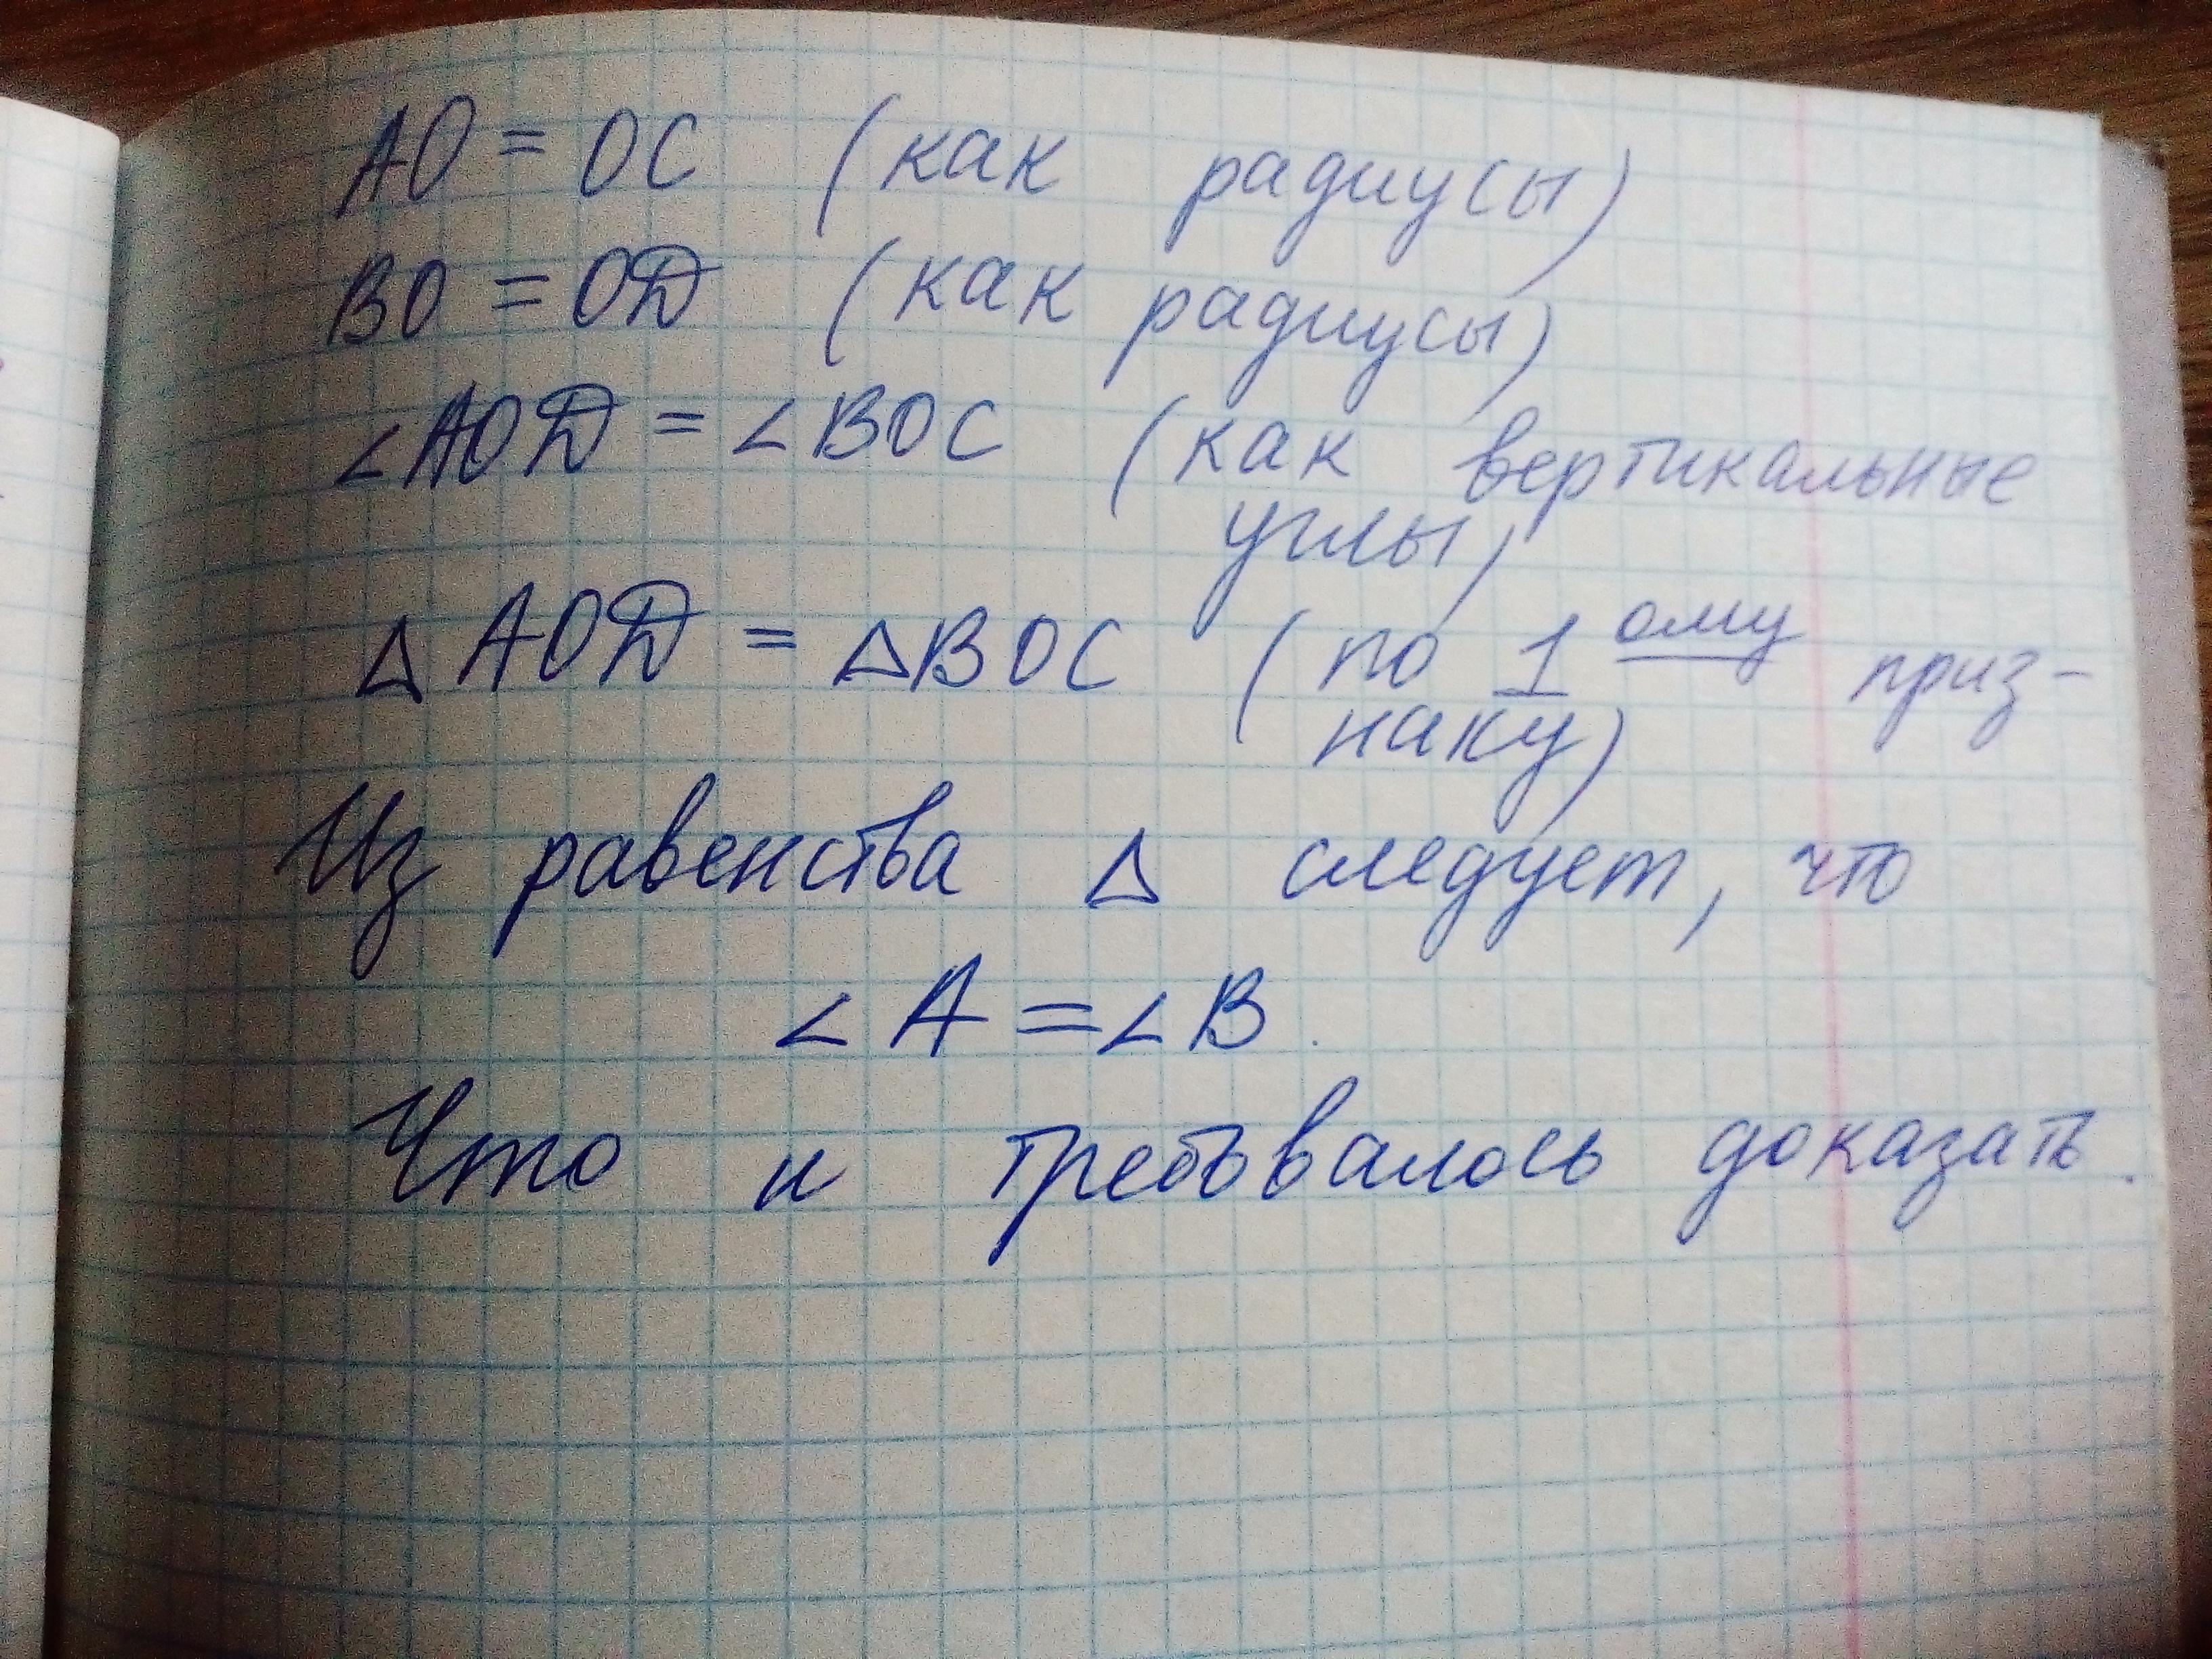 AO = OC (как радиусы)
BO = OD (как радиусы)
∠AOD = ∠BOC (как вертикальные
углы)
△ AOD = △BOC (по 1 ому приз-
наку)
Из равенства △ следует, что
∠A = ∠B.
Что и требовалось доказать.